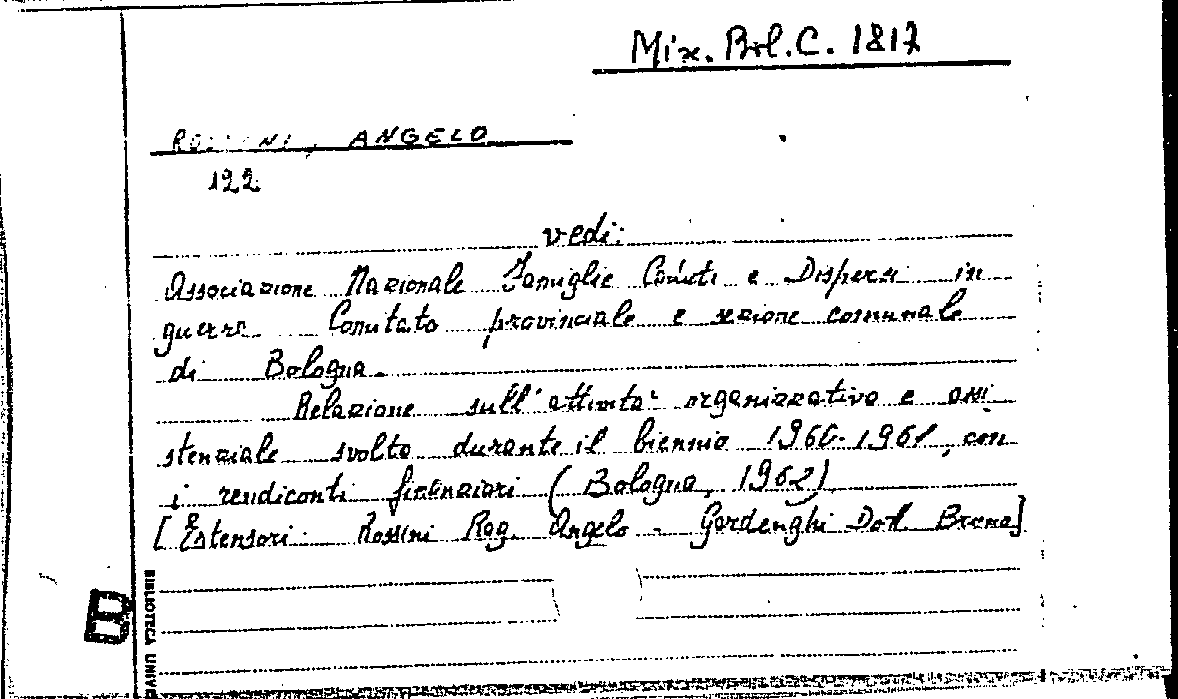 Mix. Bol. C. 1817
ROSSINI, ANGELO
122
vedi:
Associazione Nazionale Famiglie Caduti e Dispersi in
guerra Comitato provinciale e sezione comunale
di Bologna.
Relazione sull'attività organizzativa e assi
stenziale svolta durante il biennio 1960-1961, con
i rendiconti finanziari (Bologna, 1962)
[Estensori: Rossini Rag. Angelo - Gardenghi Dott. Bruna]
B
BIBLIOTECA